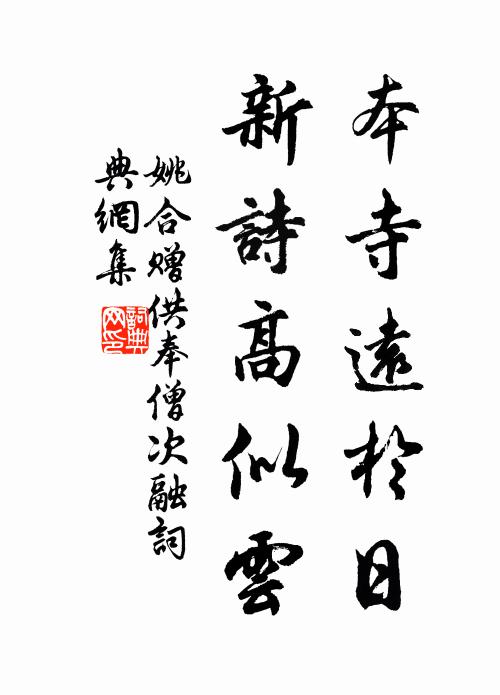 本寺遠於日
新詩高似雲
姚合贈供奉僧次融詞
典網集
詞典
网印